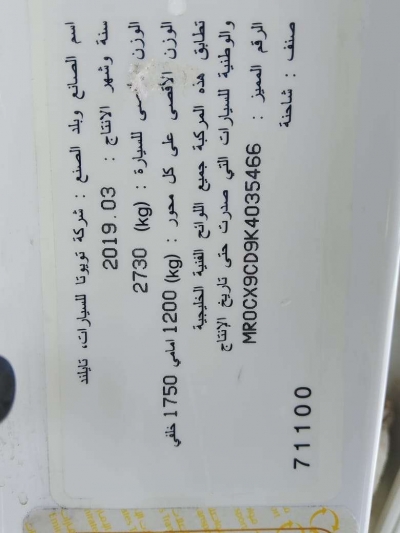 اسم الصانع وبلد الصنع : شركة تويوتا للسيارات، تايلند
سنة وشهر الانتاج : 2019.03
الوزن للسيارة : (kg) 2730
الوزن الأقصى على كل محور : (kg) 1200 امامي 1750 خلفي
تطابق هذه المركبة جميع اللوائح الفنية الخليجية
والوطنية للسيارات التي صدرت حتى تاريخ الإنتاج
الرقم المميز : MR0CX9CD9K4035466
صنف : شاحنة
71100